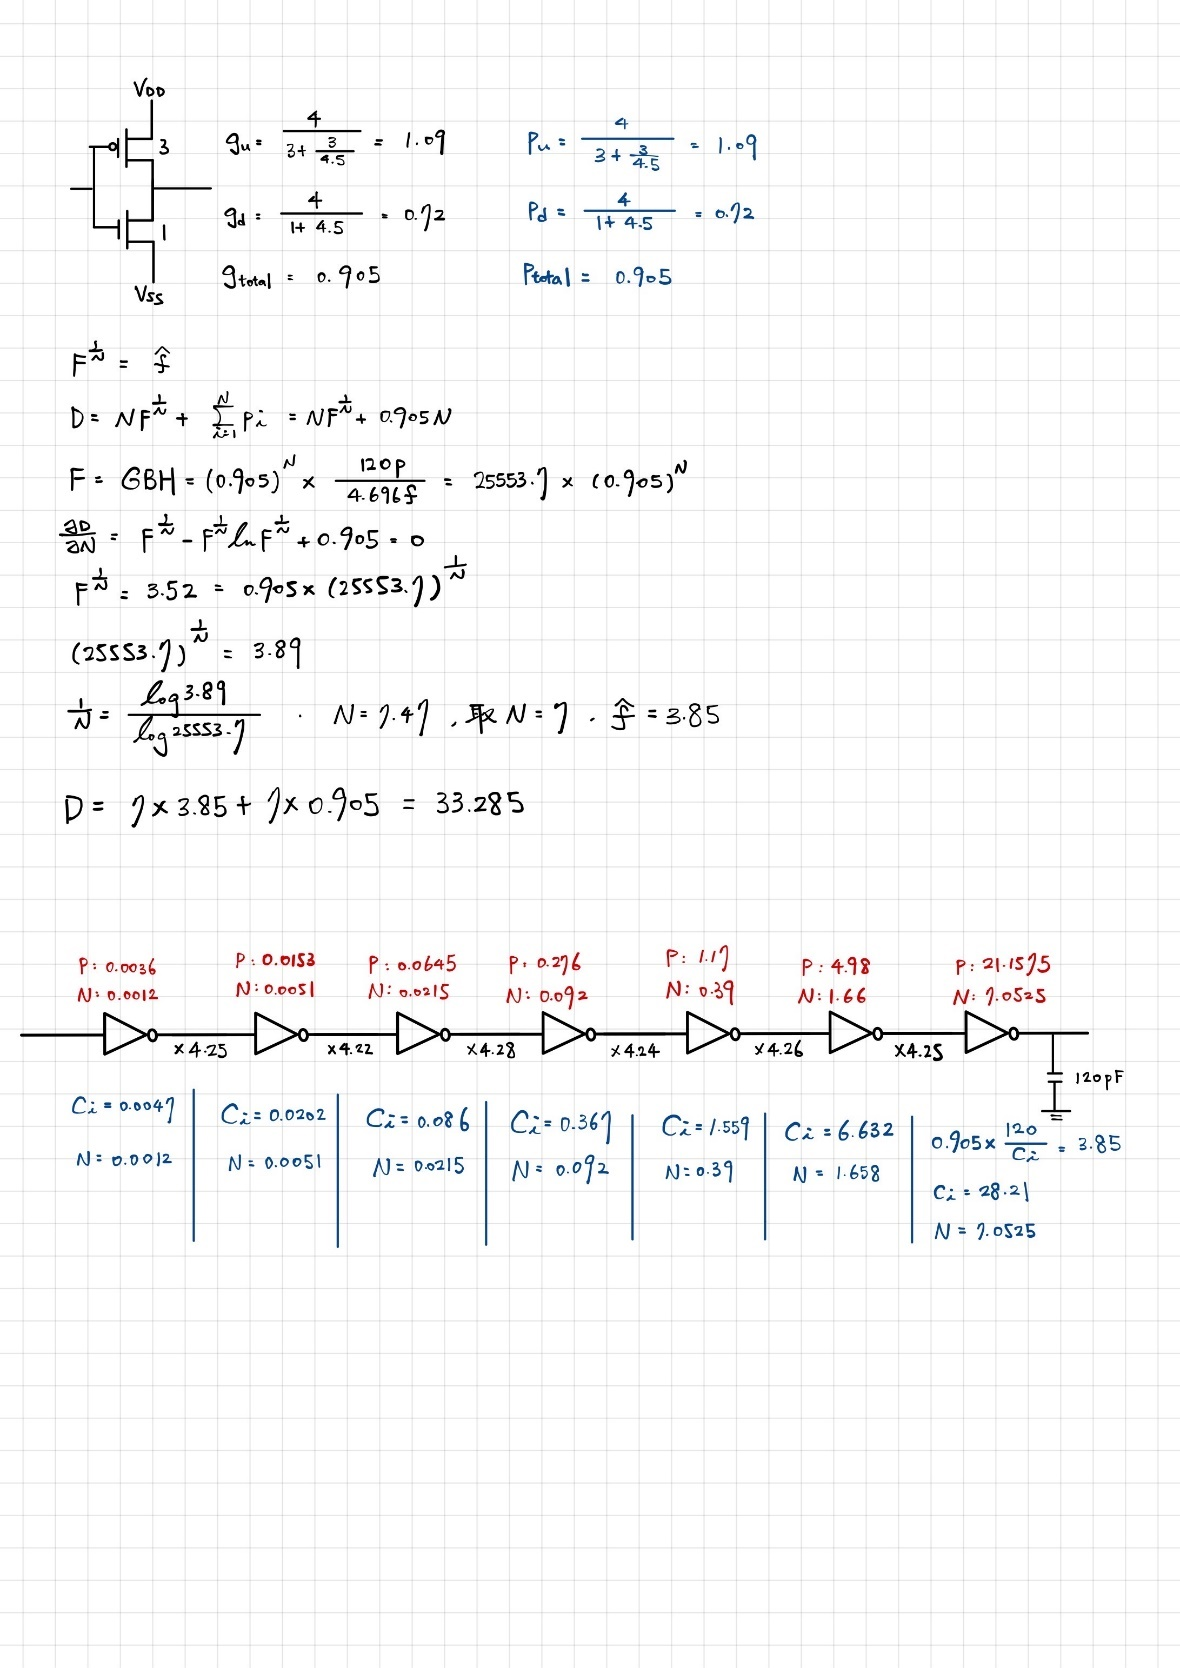 VDD
3
1
VSS
gu = 4 / (3 + 3/4.5) = 1.09
Pu = 4 / (3 + 3/4.5) = 1.09
gd = 4 / (1 + 4.5) = 0.72
Pd = 4 / (1 + 4.5) = 0.72
gtotal = 0.905
Ptotal = 0.905
F^(1/N) = f̂
D = NF^(1/N) + Σ_{i=1}^{N} Pi = NF^(1/N) + 0.905N
F = GBH = (0.905)^N × 120p / 4.696f = 25553.7 × (0.905)^N
∂D/∂N = F^(1/N) - F^(1/N) ln F^(1/N) + 0.905 = 0
F^(1/N) = 3.52 = 0.905 × (25553.7)^(1/N)
(25553.7)^(1/N) = 3.89
1/N = log 3.89 / log 25553.7 . N = 7.47 , 取 N = 7 . f̂ = 3.85
D = 7 × 3.85 + 7 × 0.905 = 33.285
P: 0.0036 P: 0.0153 P: 0.0645 P: 0.276 P: 1.17 P: 4.98 P: 21.1575
N: 0.0012 N: 0.0051 N: 0.0215 N: 0.092 N: 0.39 N: 1.66 N: 7.0525
×4.25 ×4.22 ×4.28 ×4.24 ×4.26 ×4.25
120pF
Ci = 0.0047
N = 0.0012
Ci = 0.0202
N = 0.0051
Ci = 0.086
N = 0.0215
Ci = 0.367
N = 0.092
Ci = 1.559
N = 0.39
Ci = 6.632
N = 1.658
0.905 × 120 / Ci = 3.85
Ci = 28.21
N = 7.0525